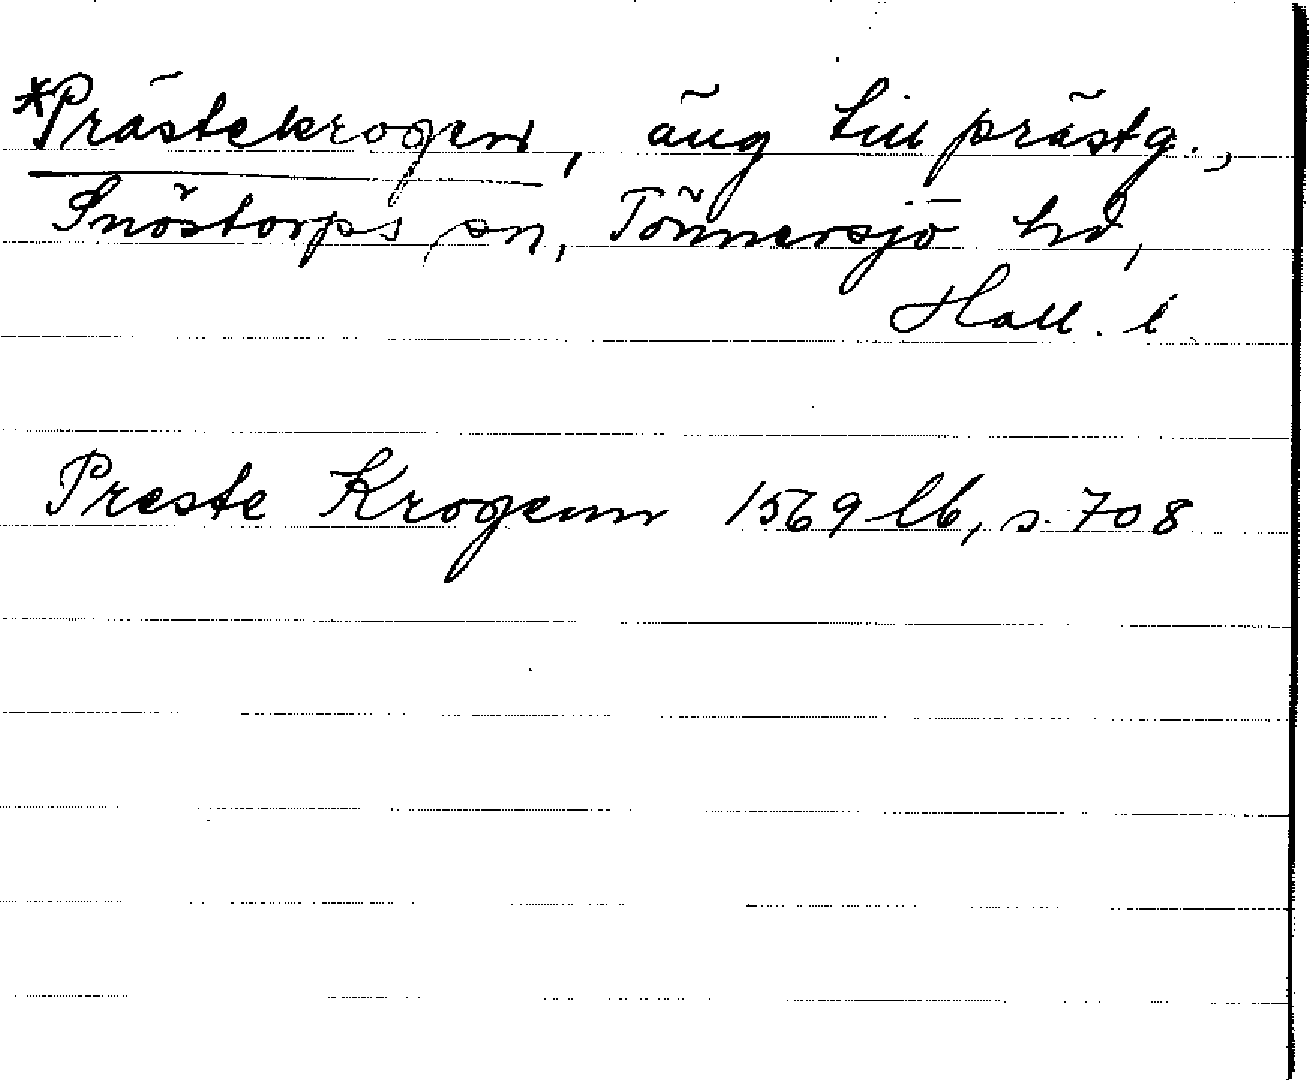 *Prästekrogen, äng till prästg.,
Snöstorps sn, Tönnersjö hd,
Hall. l.
Preste Krogenn 1569 lb, s. 708